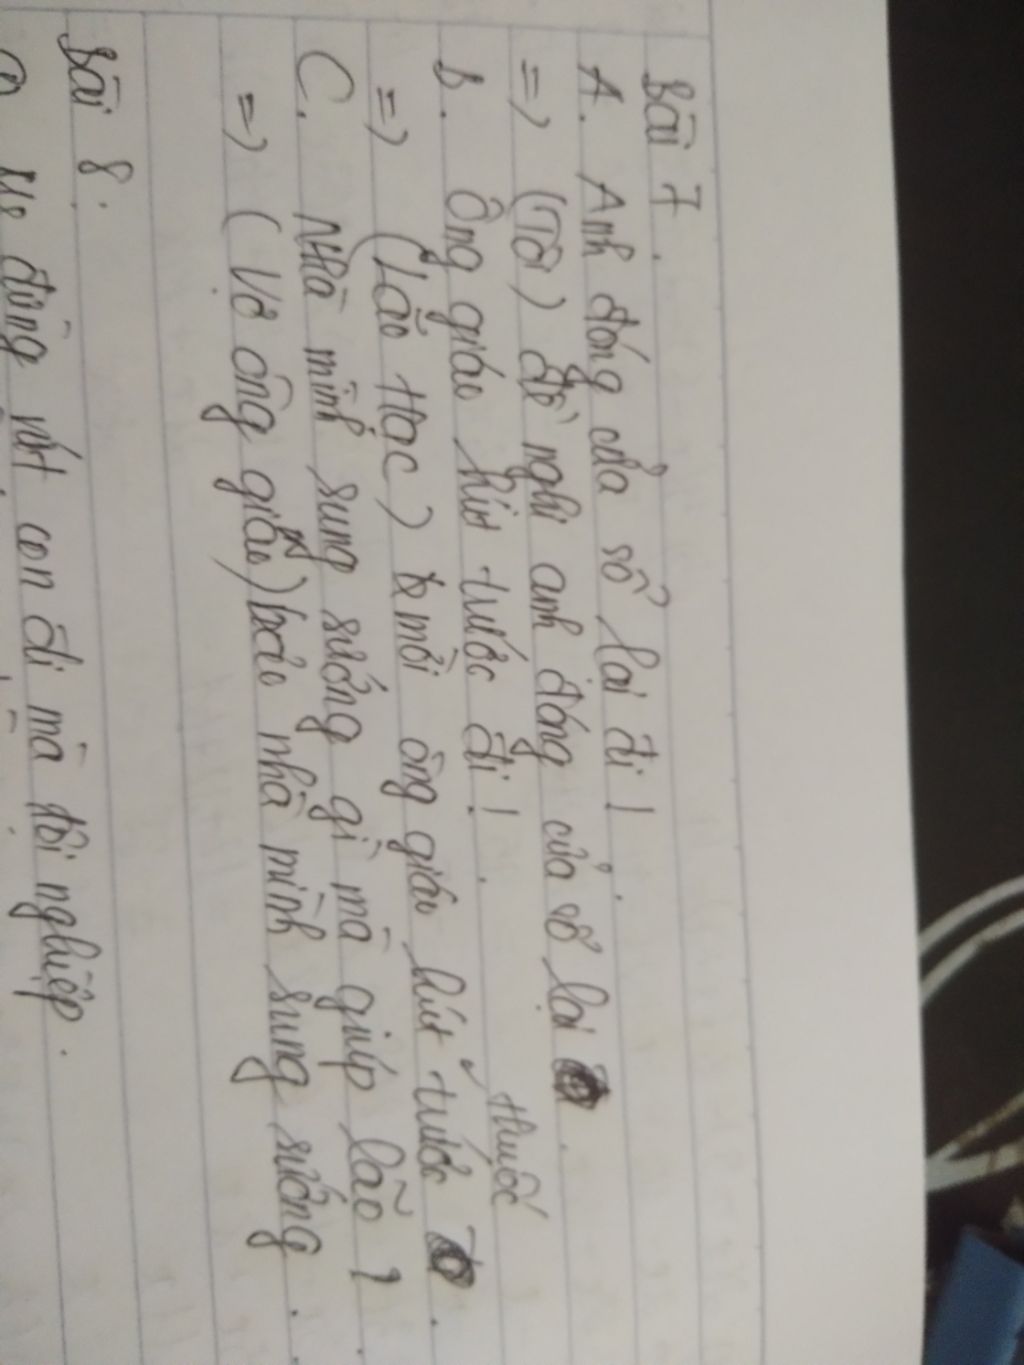 Bài 7.
A. Anh đóng cửa sổ lại đi!
=> (Tôi) đề nghị anh đóng cửa sổ lại.
B. Ông giáo hút trước đi!
thuốc
=> (Lão Hạc) mời ông giáo hút trước.
C. Nhà mình sung sướng gì mà giúp lão?
=> (Vợ ông giáo) bảo nhà mình sung sướng.
Bài 8.
đừng vứt con đi mà tội nghiệp.